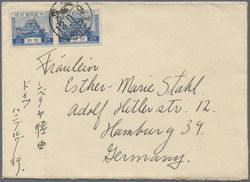 Fräulein
Esther-Marie Stahl.
Adolf Hitlerstr. 12.
Hamburg 39.
Germany.
シベリヤ経由
ドイツ
ハンブルグ行